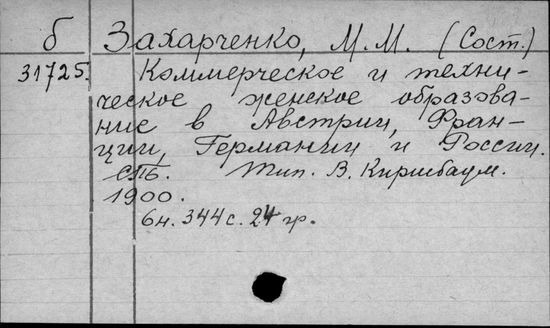 б Захарченко, М.М. (Сост.)
31725. Коммерческое и техни-
ческое женское образова-
ние в Австрии, Фран-
ции, Германии и России.
СПБ. Тип. В. Киршбаум.
1900.
6н. 344с. 24 гр.